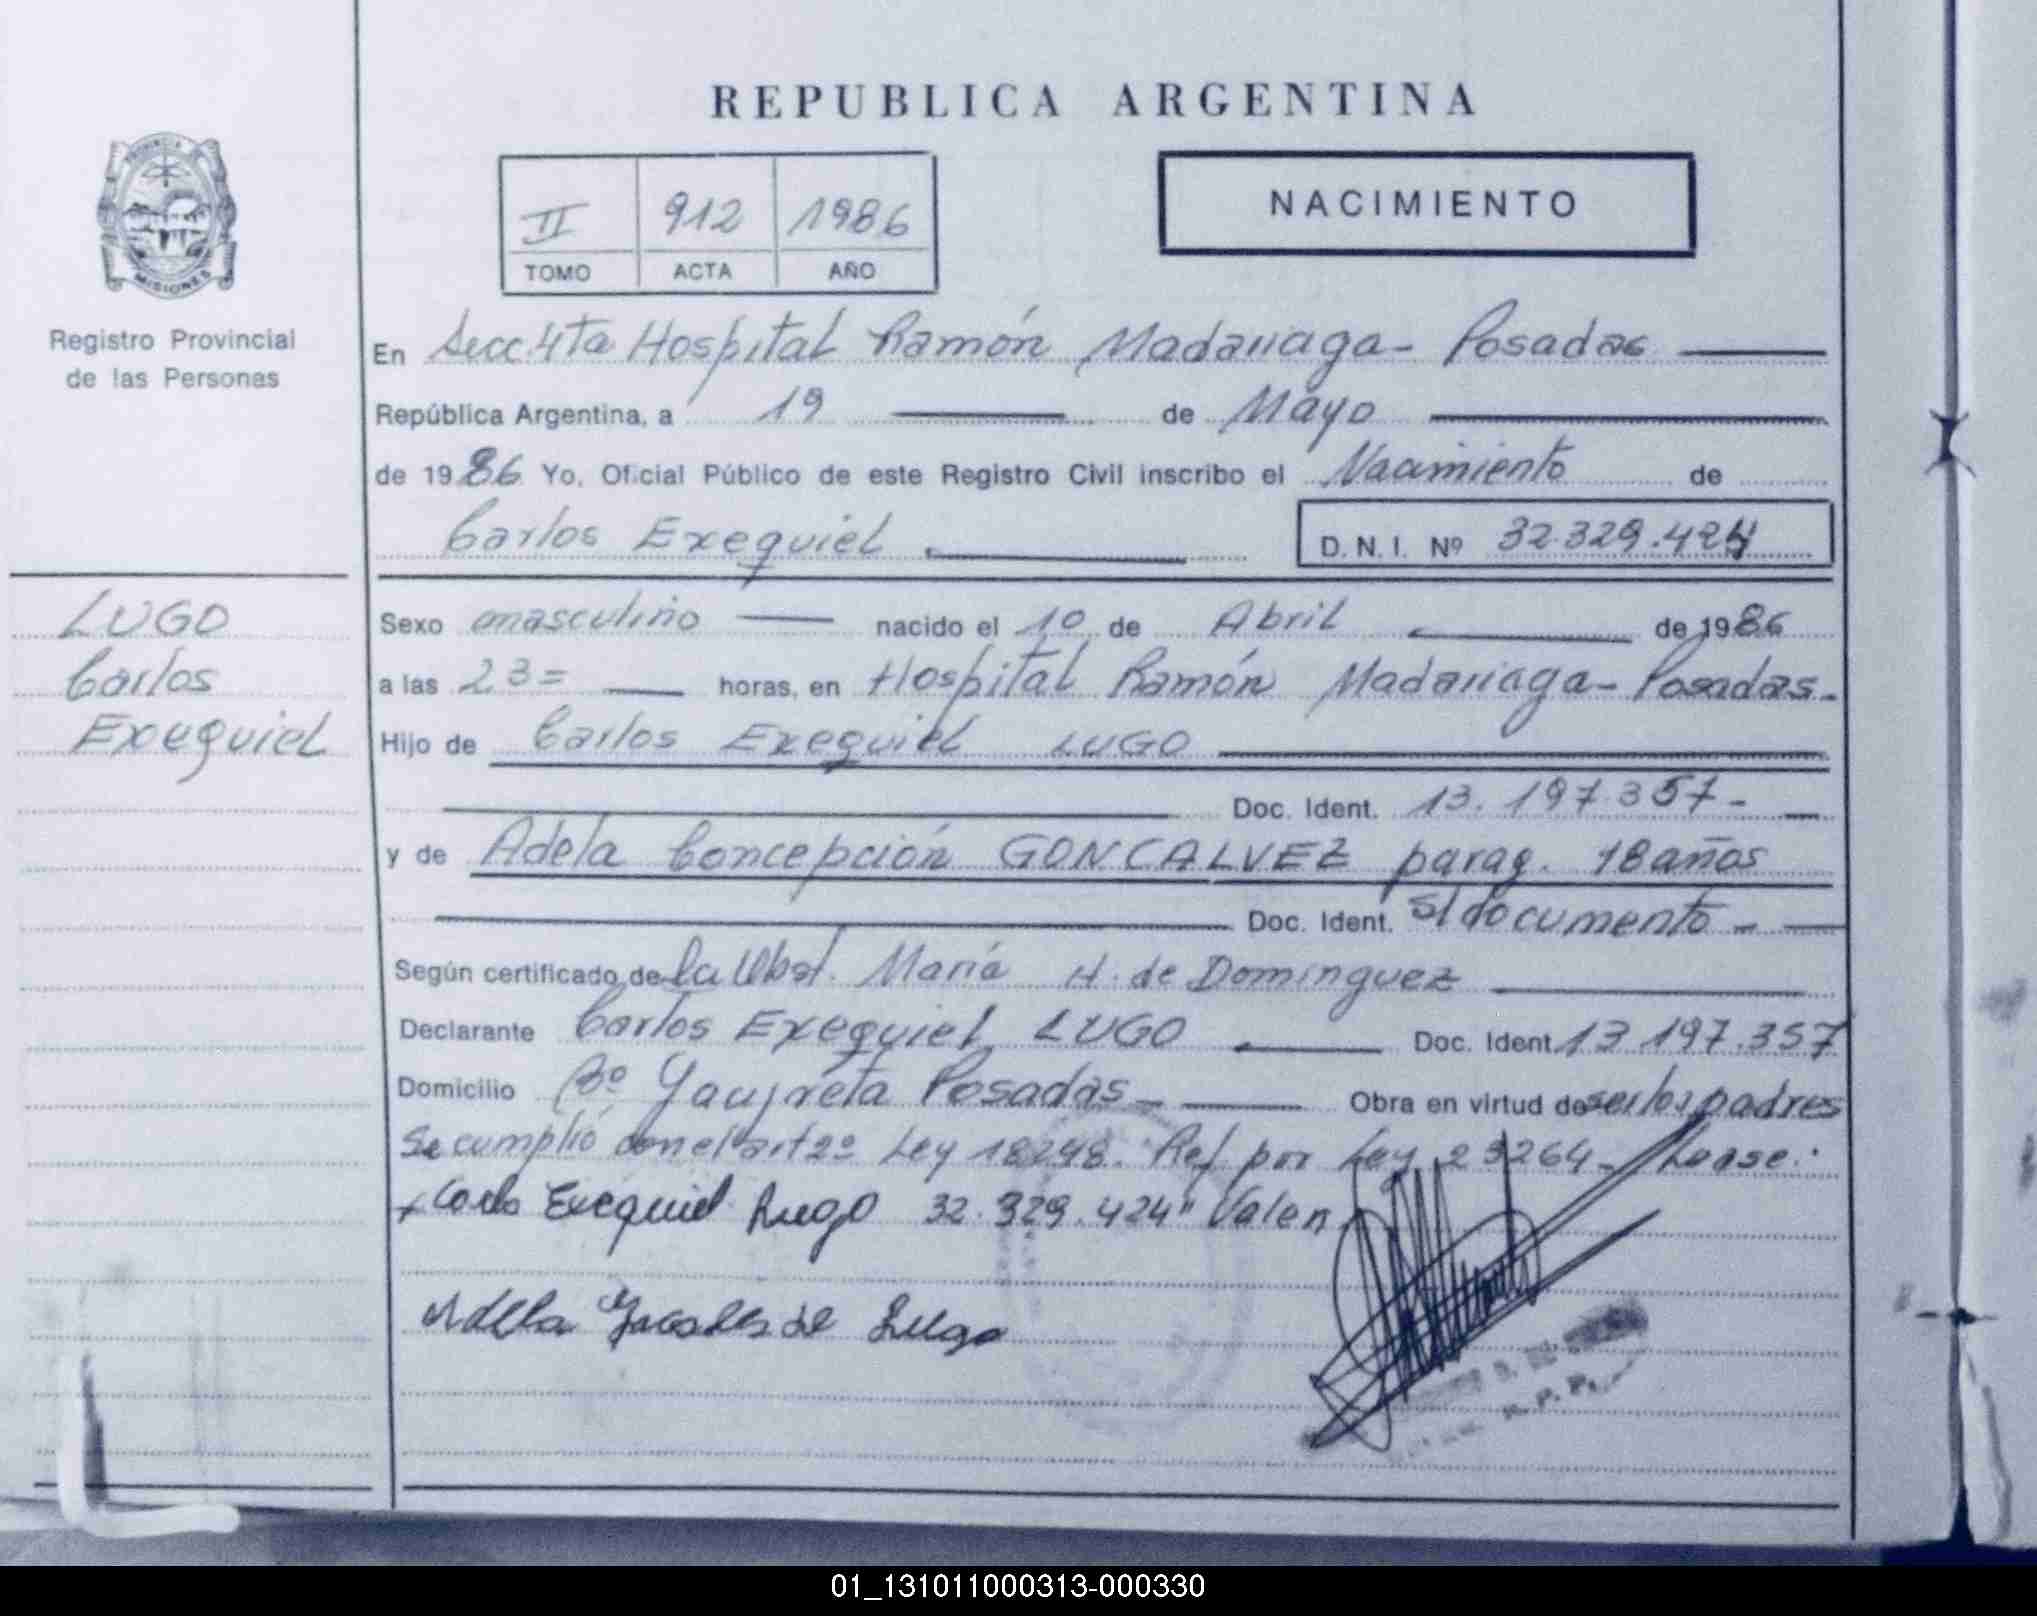 REPUBLICA ARGENTINA
PROVINCIA
MISIONES
Registro Provincial
de las Personas
II 912 1986
TOMO ACTA AÑO
NACIMIENTO
En Secc. 4ta Hospital Ramón Madariaga - Posadas
República Argentina, a 19 de Mayo
de 1986 Yo, Oficial Público de este Registro Civil inscribo el Nacimiento de
Carlos Exequiel D.N.I. Nº 32.329.424
LUGO
Carlos
Exequiel
Sexo masculino nacido el 10 de Abril de 1986
a las 23= horas, en Hospital Ramón Madariaga - Posadas.
Hijo de Carlos Exequiel LUGO
Doc. Ident. 13.197.357-
y de Adela Concepción GONCALVEZ parag. 18 años
Doc. Ident. s/documento -
Según certificado de la Obst. María H. de Dominguez
Declarante Carlos Exequiel LUGO Doc. Ident. 13.197.357
Domicilio Bº Yacyreta Posadas Obra en virtud de ser los padres
Se cumplió con el art 2º Ley 18248. Ref por Ley 23264- Lease:
Carlos Exequiel Lugo 32.329.424" Valen
Adela de Lugo
R.P.P.
01_131011000313-000330